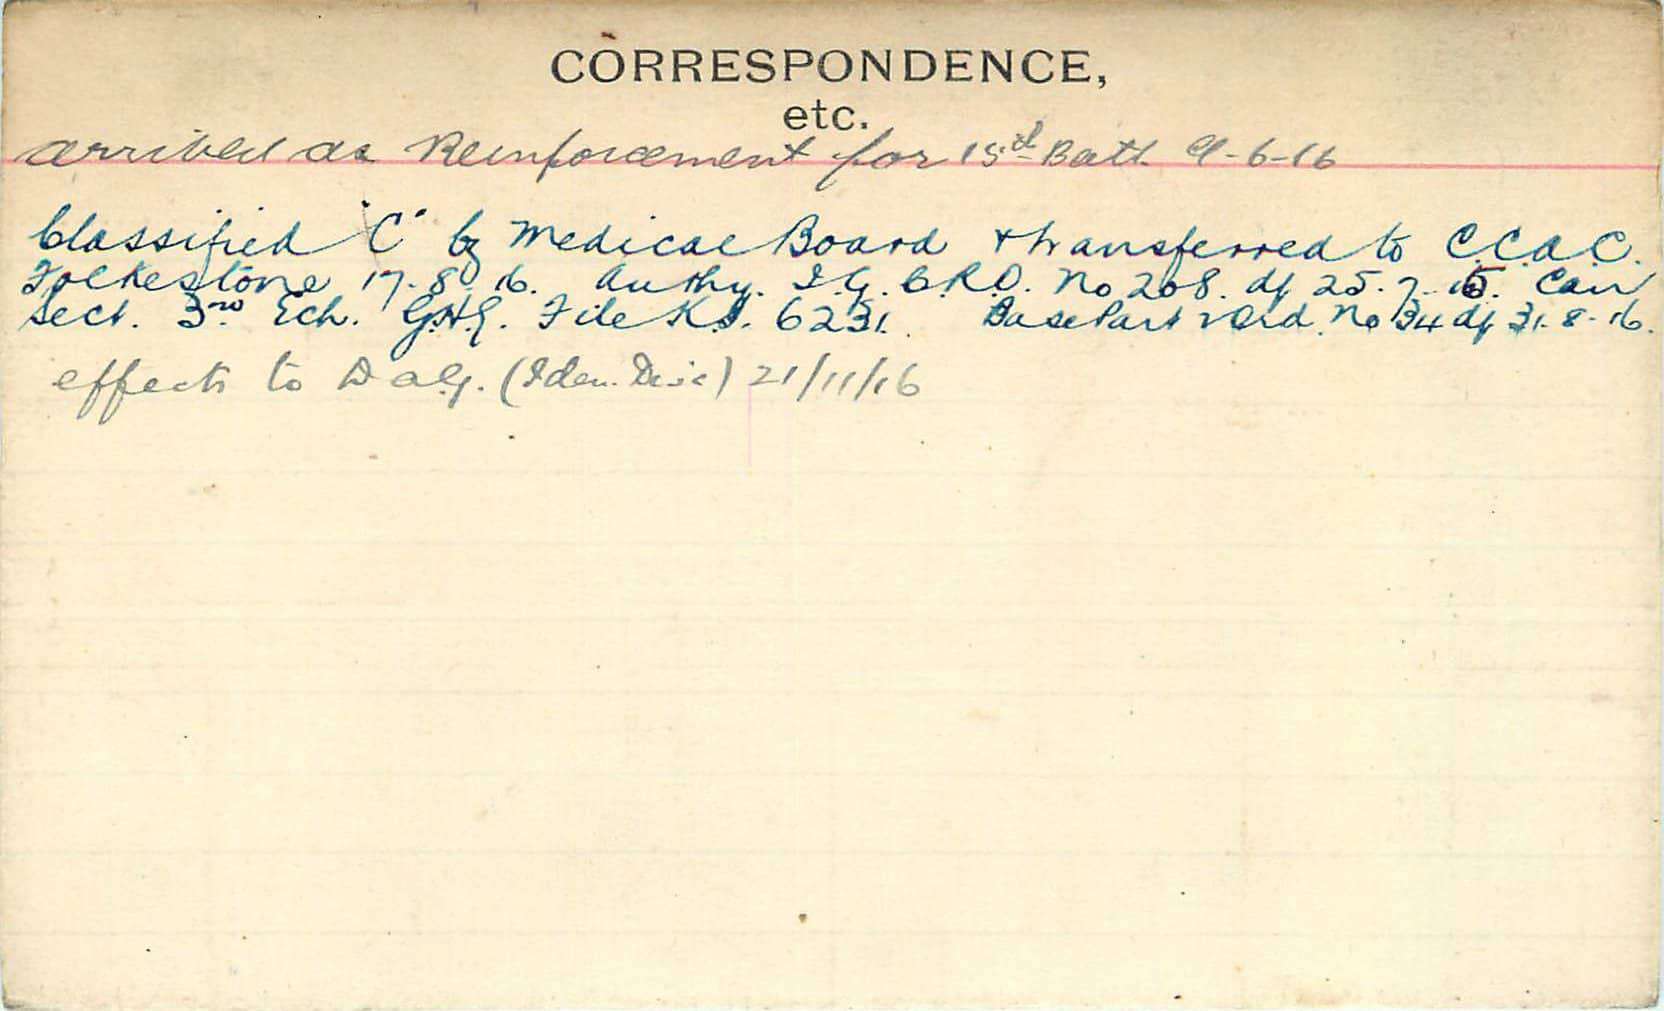 CORRESPONDENCE,
etc.
arrived as Reinforcement for 15th Batt 9-6-16
Classified "C" by Medical Board & transferred to C.C.A.C.
Folkestone 17-8-16. Authy. I.G. C.R.O. No 208. df 25.7. Can
Sect. 3rd Ech. G.H.Q. File K 6231. Base Part Ord. No 34 df 31-8-16.
effects to D a.g. (Iden. ) 21/11/16